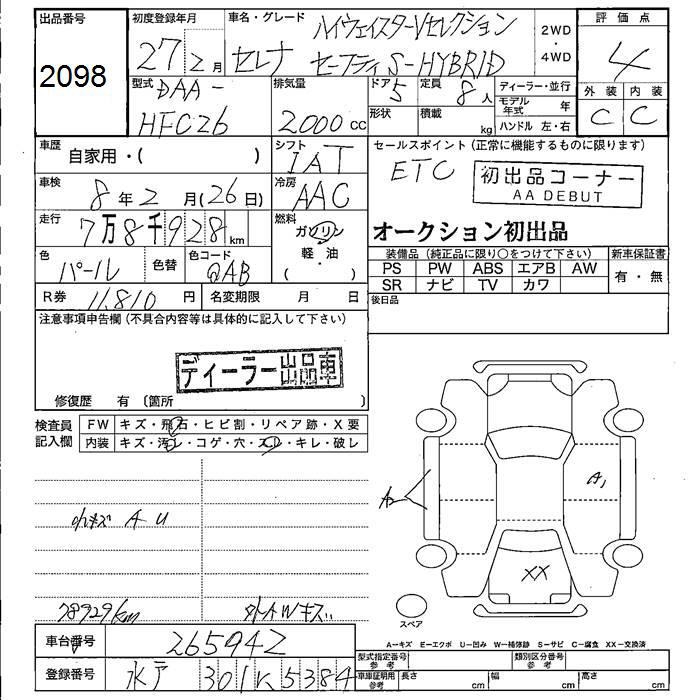 出品番号
2098
初度登録年月
27年2月
車名・グレード
セレナ
ハイウェイスターVセレクション
セーフティ S-HYBRID
2WD
・
4WD
評価点
4
外装 内装
C C
型式
DAA-
HFC26
排気量
2000 cc
ドア 5
定員 8人
形状
積載 kg
ディーラー・並行
モデル年式 年
ハンドル 左・右
車歴
自家用・( )
シフト
IAT
車検
8年2月(26日)
冷房
AAC
走行
7万8千928km
燃料
ガソリン
軽・油
( )
色
パール
色替
色コード
QAB
R券 11,810円
名変期限 月 日
セールスポイント (正常に機能するものに限ります)
ETC
初出品コーナー
AA DEBUT
オークション初出品
装備品 (純正品に限り○をつけて下さい)
新車保証書
PS PW ABS エアB AW
SR ナビ TV カワ
有・無
後日品
注意事項申告欄 (不具合内容等は具体的に記入して下さい)
ディーラー出品車
修復歴 有 〔箇所 〕
検査員
記入欄
FW キズ・飛石・ヒビ割・リペア跡・X要
内装 キズ・汚レ・コゲ・穴・スレ・キレ・破レ
小キズ A U
78929km
外AWキズ
A2
A1
XX
スペア
A-キズ E-エクボ U-凹み W-補修跡 S-サビ C-腐食 XX-交換済
車台番号 265942
登録番号 水戸 301 K 5384
型式指定番号 参考
類別区分番号 参考
車庫証明用 参考
長さ cm
幅 cm
高さ cm